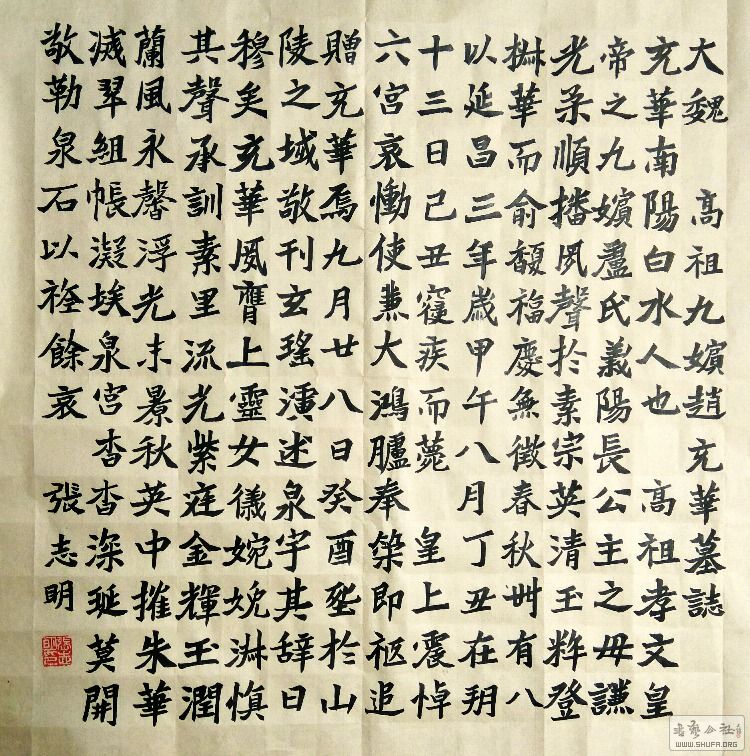 大魏　高祖九嬪趙充華墓誌
充華南陽白水人也　高祖孝文皇
帝之九嬪盧氏義陽長公主之母謙
光柔順播夙聲於素宗英清玉粹登
椒華而俞馥福慶無徵春秋卌有八
以延昌三年歲甲午八月丁丑在朔
十三日己丑寢疾而薨　皇上震悼
六宮哀慟使兼大鴻臚奉策即柩追
贈充華焉九月廿八日癸酉葬於山
陵之域敬刊玄瑤演述泉宇其辭曰
穆矣充華夙膺上靈女儀婉娩淋慎
其聲承訓素里流光紫庭金輝玉潤
蘭風永馨浮光未景秋英中摧朱華
滅翠組帳凝埃泉宮杳杳深埏莫開
敬勒泉石以旌餘哀　張志明
书艺公社
WWW.SHUFA.ORG